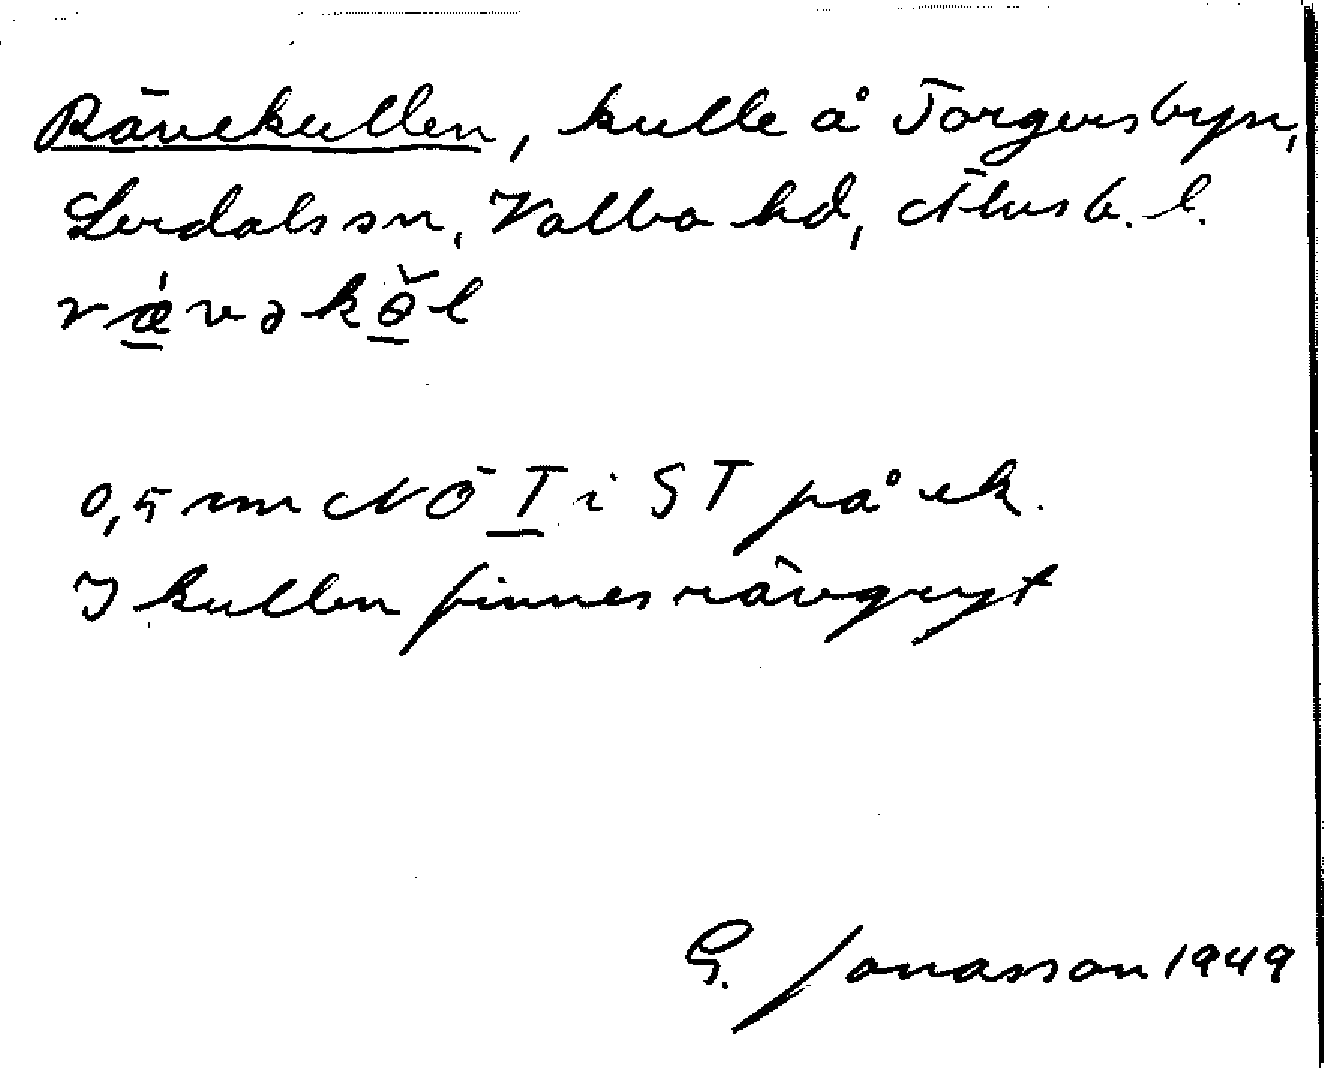 Rävekullen, kulle å Torgersbyn,
Lerdals sn, Valbo hd, Älvsb. l.
rǽvəkö̆l
0,5 mm NÖ T i ST på ek.
I kullen finnes rävgryt
G. Jonasson 1949